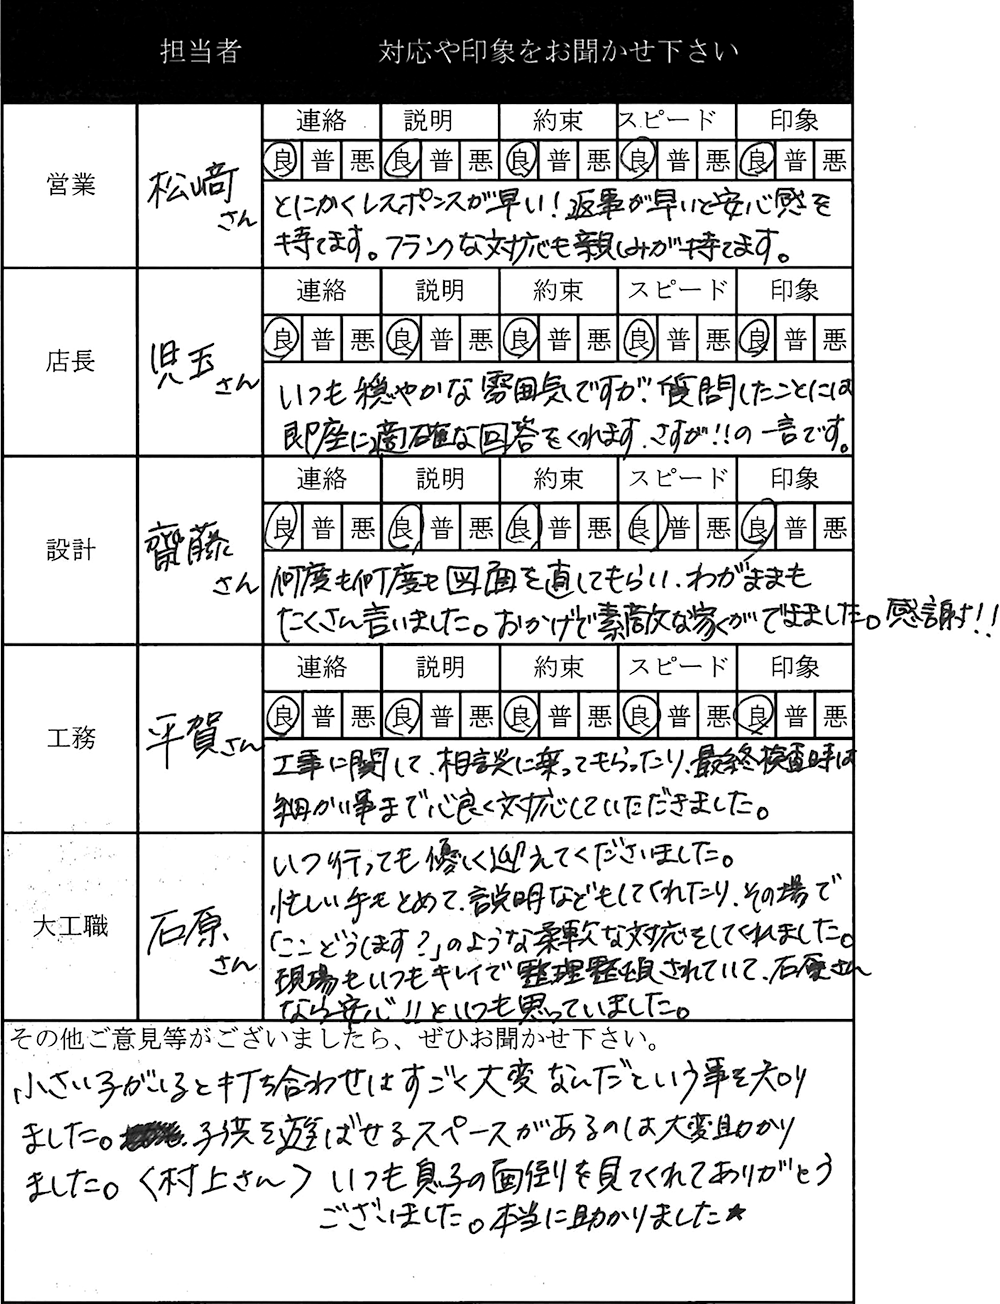 担当者 対応や印象をお聞かせ下さい
営業 松﨑さん
連絡 説明 約束 スピード 印象
良 普 悪 良 普 悪 良 普 悪 良 普 悪 良 普 悪
とにかくレスポンスが早い！返事が早いと安心感を
持てます。フランクな対応も親しみが持てます。
店長 児玉さん
連絡 説明 約束 スピード 印象
良 普 悪 良 普 悪 良 普 悪 良 普 悪 良 普 悪
いつも穏やかな雰囲気ですが、質問したことには
即座に適確な回答をくれます、さすが!!の一言です。
設計 齋藤さん
連絡 説明 約束 スピード 印象
良 普 悪 良 普 悪 良 普 悪 良 普 悪 良 普 悪
何度も何度も図面を直してもらい、わがままも
たくさん言いました。おかげで素敵な家ができました。感謝!!
工務 平賀さん
連絡 説明 約束 スピード 印象
良 普 悪 良 普 悪 良 普 悪 良 普 悪 良 普 悪
工事に関して、相談に乗ってもらったり、最終検査時は
細かい事まで心良く対応していただきました。
大工職 石原さん
いつ行っても優しく迎えてくださいました。
忙しい手もとめて、説明などもしてくれたり、その場で
「ここどうします？」のような柔軟な対応をしてくれました。
現場もいつもキレイで整理整頓されていて、石原さん
なら安心!!といつも思っていました。
その他ご意見等がございましたら、ぜひお聞かせ下さい。
小さい子がいると打ち合わせはすごく大変なんだという事を知り
ました。子供を遊ばせるスペースがあるのは大変助かり
ました。〈村上さん〉いつも息子の面倒を見てくれてありがとう
ございました。本当に助かりました★